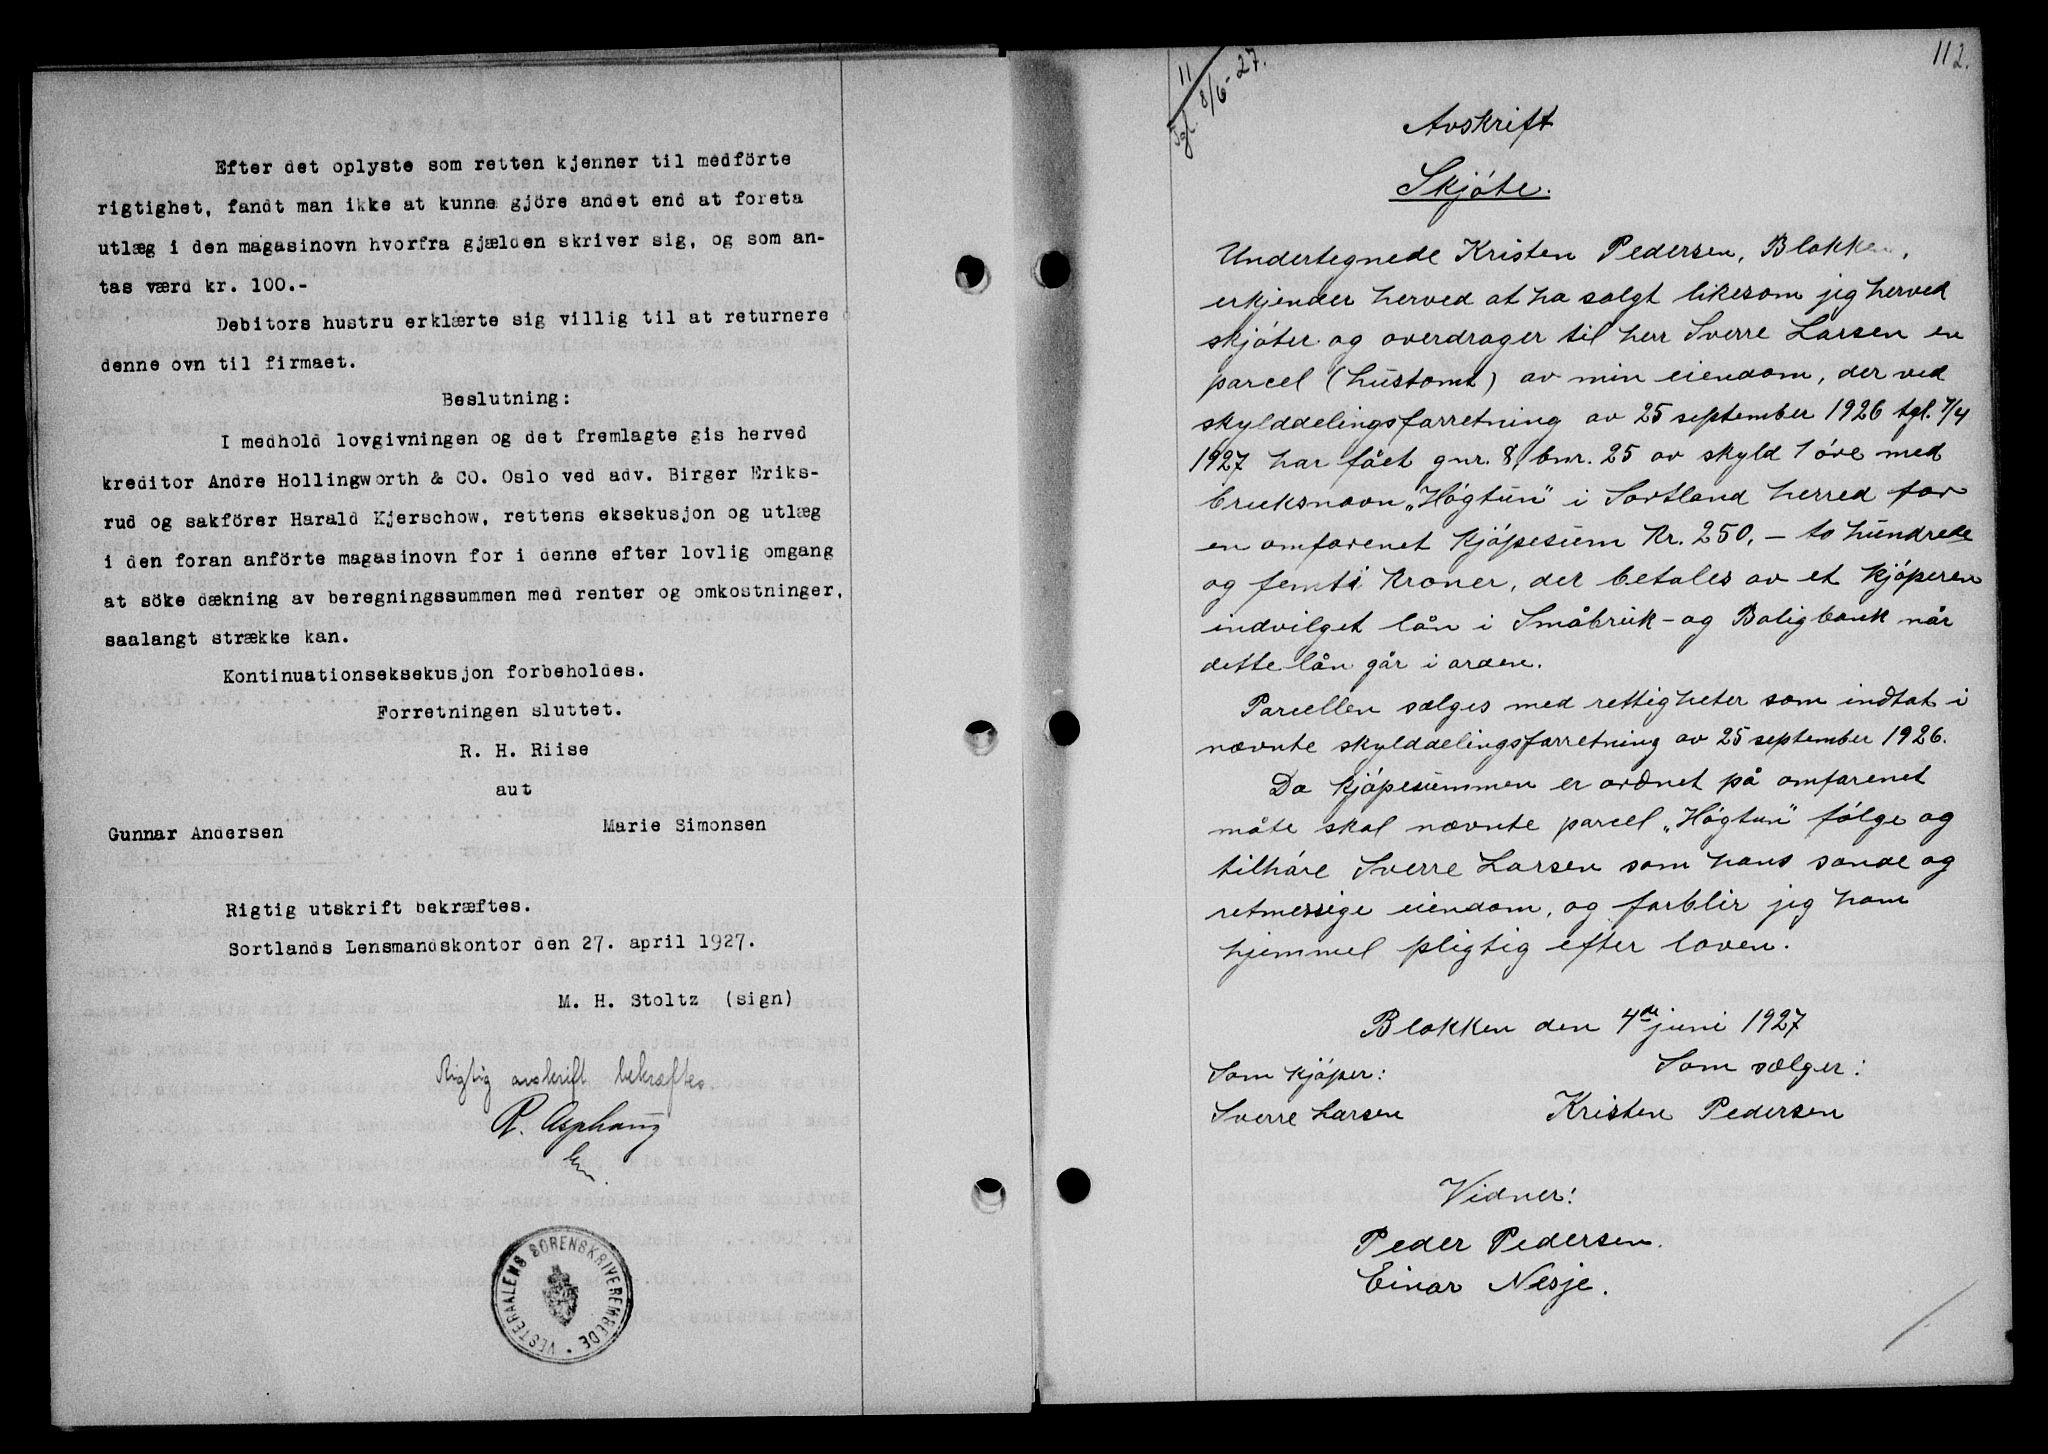 Efter det oplyste som retten kjenner til medförte
rigtighet, fandt man ikke at kunne gjöre andet end at foreta
utlæg i den magasinovn hvorfra gjælden skriver sig, og som an-
tas værd kr. 100.-
Debitors hustru erklærte sig villig til at returnere
denne ovn til firmaet.
Beslutning:
I medhold lovgivningen og det fremlagte gis herved
kreditor Andre Hollingworth & CO. Oslo ved adv. Birger Eriks-
rud og sakförer Harald Kjerschow, rettens eksekusjon og utlæg
i den foran anförte magasinovn for i denne efter lovlig omgang
at söke dækning av beregningssummen med renter og omkostninger,
saalangt strække kan.
Kontinuationseksekusjon forbeholdes.
Forretningen sluttet.
R. H. Riise
aut
Gunnar Andersen Marie Simonsen
Rigtig utskrift bekræftes.
Sortlands Lensmandskontor den 27. april 1927.
M. H. Stoltz (sign)
Rigtig avskrift bekræftes.
R. Asphaug
VESTERAALENS SORENSKRIVEREMBEDE
112.
11
Tgl. 8/6-27.
Avskrift
Skjöte.
Undertegnede Kristen Pedersen, Blokken,
erkjender herved at ha solgt likesom jeg herved
skjöter og overdrager til herr Sverre Larsen en
parcel (hustomt) av min eiendom, der ved
skylddelingsforretning av 25 september 1926 tgl. 7/4
1927 har fået gnr. 8, bnr. 25 av skyld 1 öre med
bruksnavn "Högtun" i Sortland herred for
en omforenet kjöpesum Kr. 250,- to hundrede
og femti Kroner, der betales av et kjöperen
indvilget lån i Småbruk- og Boligbank når
dette lån går i orden.
Parcellen sælges med rettigheter som indtat i
nævnte skylddelingsforretning av 25 september 1926.
Da kjöpesummen er ordnet på omforenet
måte skal nævnte parcel "Högtun" fölge og
tilhöre Sverre Larsen som hans sande og
retmessige eiendom, og forblir jeg ham
hjemmel pligtig efter loven.
Blokken den 4de juni 1927
Som kjöper: Som sælger:
Sverre Larsen Kristen Pedersen
Vidner:
Peder Pedersen.
Einar Nesje.